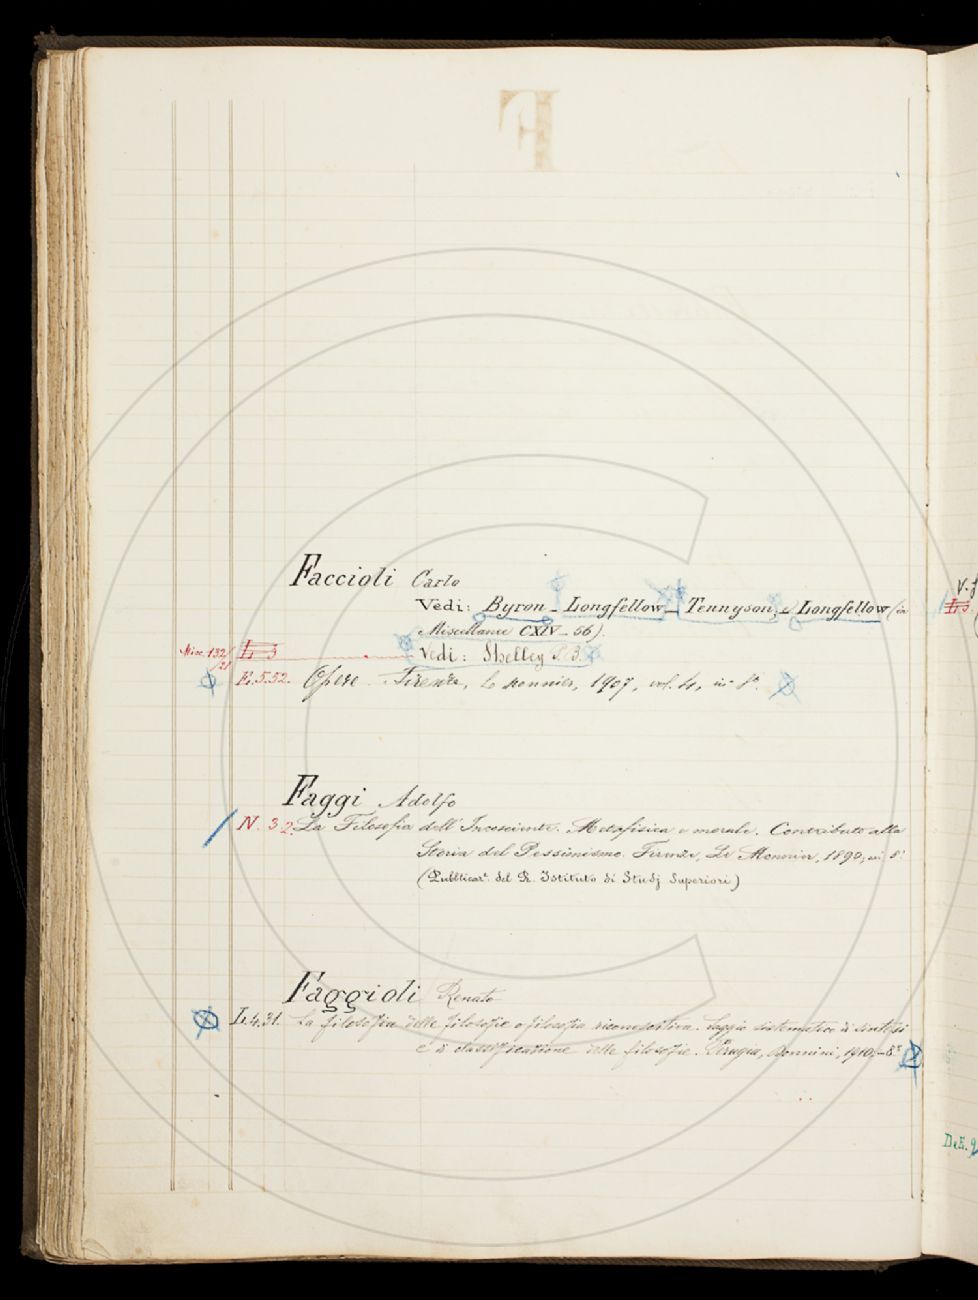 F
Faccioli Carlo
Vedi: Byron - Longfellow - Tennyson, e Longfellow (in
Miscellanee CXIV-56).
Misc. 132/21 L. 3 Vedi: Shelley P. B.
E.5.52. Opere. Firenze, Le Monnier, 1907, vol. 4, in 8°.
Faggi Adolfo
N. 3.2 La Filosofia dell'Incosciente. Metafisica e morale. Contributo alla
Storia del Pessimismo. Firenze, Le Monnier, 1890; in 8°
(Pubblicaz.i del R. Istituto di Studj Superiori)
Faggioli Renato
L.4.31. La filosofia delle filosofie o filosofia ricompositiva. Saggio sistematico di sintesi
e di classificazione delle filosofie. Perugia, Donnini, 1910,-8°
V.
L5.
D.E.